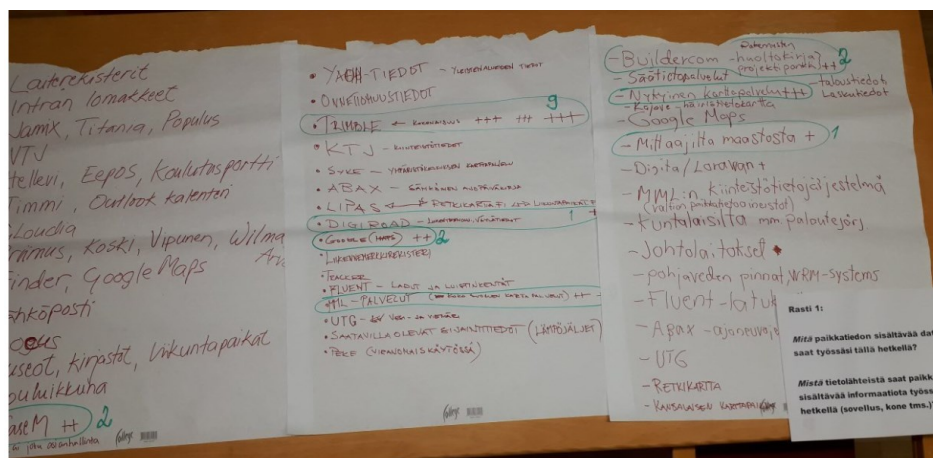 Laiterekisterit
Intran lomakkeet
Jamix, Titania, Populus
VTJ
Eepos, Koulutusportti
Timmi, Outlook kalenteri
Cloudia
Primus, Koski, Vipunen, Wilma
Google Maps
kirjastot, liikuntapaikat
M ++ 2
joka asianhallinta
College
• YACHH-TIEDOT - YLEISTEN ALUEIDEN TIEDOT
• ONNETTOMUUSTIEDOT
9
• TRIMBLE ← KOKONAISUUS +++ +++ +++
• KTJ - KIINTEISTÖTIEDOT
• SYKE - YMPÄRISTÖKESKUKSEN KARTTAPALVELU
• ABAX - SÄHKÖINEN AJOPÄIVÄKIRJA
• LIPAS ← RETKIKARTTA.FI
• DIGIROAD - 1 +
• GOOGLE (MAPS) ++ 2
• LIIKENNEMERKKIREKISTERI
• TRACKER
• FLUENT - LADUT JA LUISTINKENTÄT
PALVELUT ++
• UTG
• SAATAVILLA OLEVAT SIJAINTITIEDOT (LÄMPÖJÄLJET)
• PEKE (VIRANOMAISKÄYTÖSSÄ)
College
Rakennusten
- Buildercom - huoltokirja ++ 2
(projektipankki)
- Säätietopalvelut
- Nykyinen karttapalvelu +++ - taloustiedot
Laskutiedot
- häiriötietokartta
- Google Maps
- Mittaajilta maastosta + 1
- Digita / Loravan +
- MML:n kiinteistötietojärjestelmä
(valtion paikkatietoaineistot)
- Kuntalaisilta mm. palautejärj
- Johtolaitokset
- pohjaveden pinnat, WRM-systems
- Fluent - latu
- Abax - ajoneuvoja
- UTG
- RETKIKARTTA
- KANSALAISEN KARTTAPAIKKA
Rasti 1:
Mitä paikkatiedon sisältävää dat
saat työssäsi tällä hetkellä?
Mistä tietolähteistä saat paikk
sisältävää informaatiota työss
hetkellä (sovellus, kone tms.)